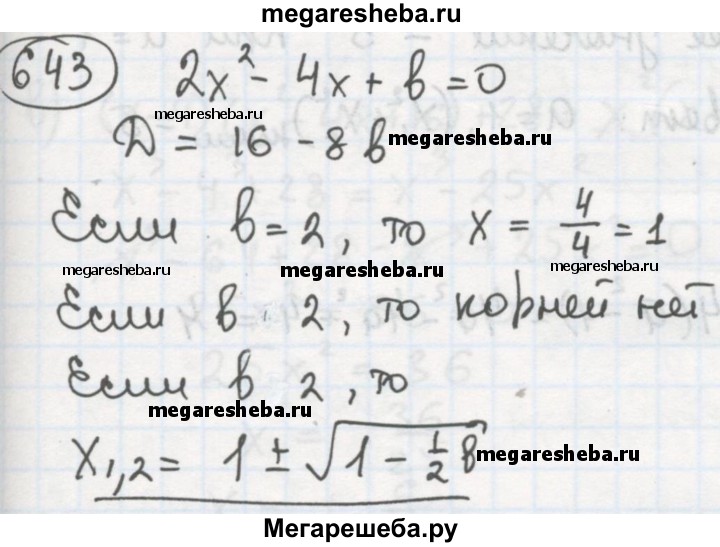 megaresheba.ru
643 2x² - 4x + b = 0
megaresheba.ru
D = 16 - 8b megaresheba.ru
Если b = 2, то x = 4/4 = 1
megaresheba.ru megaresheba.ru megaresheba.ru
Если b 2, то корней нет
Если b 2, то
megaresheba.ru
x₁,₂ = 1 ± √(1 - 1/2 b) megaresheba.ru
Мегарешеба.ру